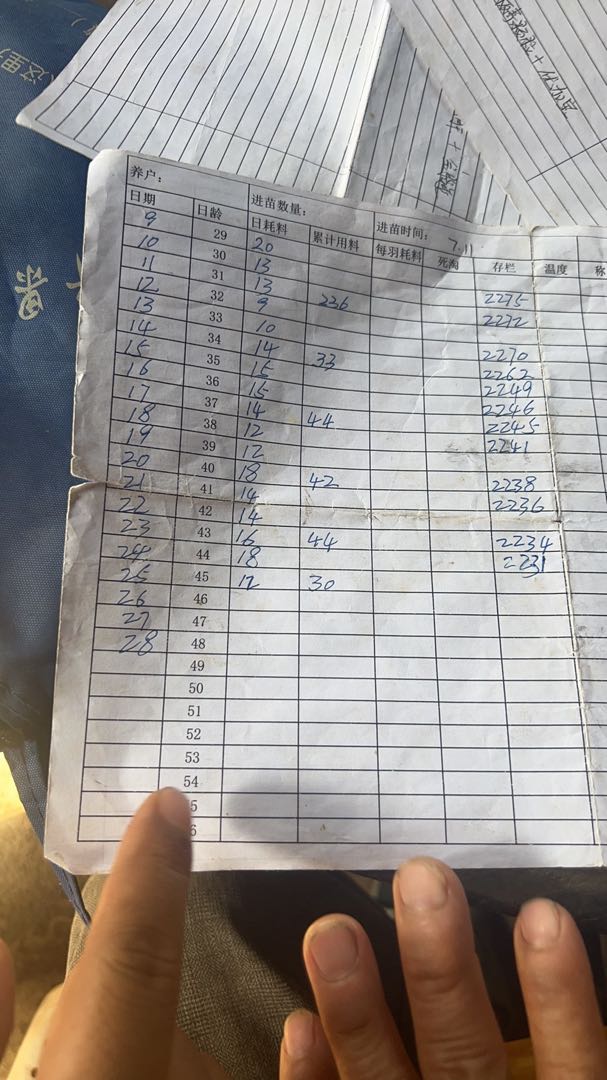 养户： 进苗数量： 进苗时间： 7.11
日期 日龄 日耗料 累计用料 每羽耗料 死淘 存栏 温度 称
9 29 20
10 30 13
11 31 13 2275
12 32 9 236 2272
13 33 10 2270
14 34 14 2262
15 35 15 33 2249
16 36 15 2246
17 37 14 2245
18 38 12 44 2241
19 39 12
20 40 18 42 2238
21 41 14 2236
22 42 14
23 43 16 44 2234
24 44 18 2231
25 45 12 30
26 46
27 47
28 48
49
50
51
52
53
54
5
6